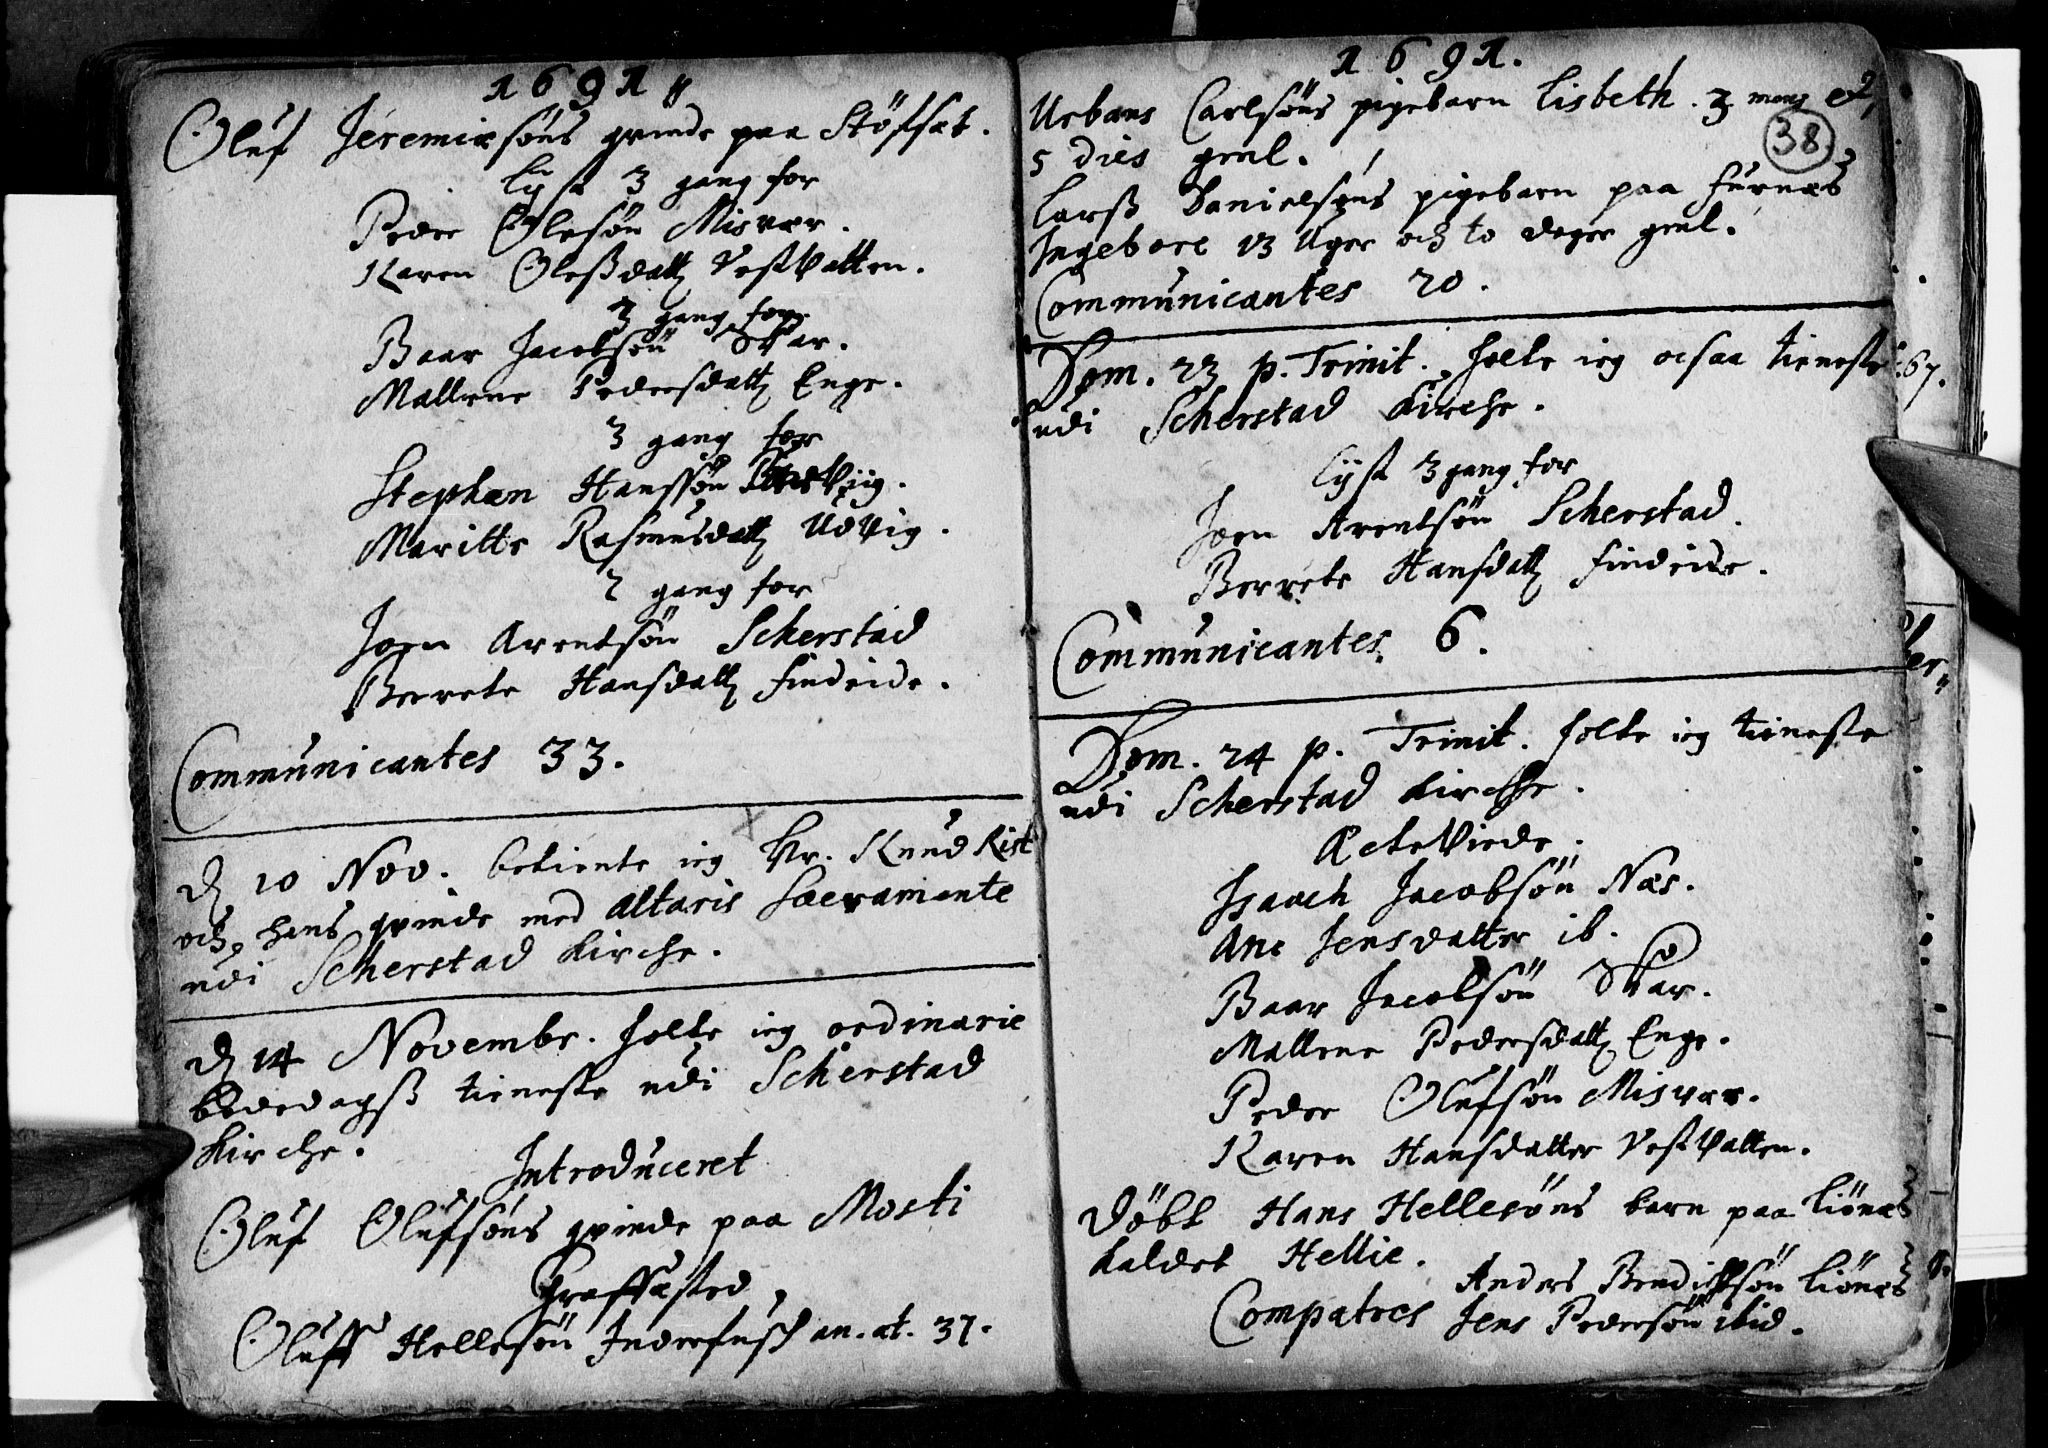 1691
Oluf Jeremiæsøns qvinde paa Støfsæt.
Lyst 3 gang for
Peder Olesøn Misvær.
Karen Oleßdatt Vestvatten.
3 gang for
Baar Jacobsøn Skar.
Mallene Pedersdatt Enge.
3 gang for
Stephen Hanssøn
Maritte Rasmusdatt Udvig.
2 gang for
Joen Arentsøn Scherstad
Berrete Hansdatt Findeide.
Communicantes 33.
D 10 Nov. betiente ieg Hr. Knud Rist
och hans qvinde med altaris Sacramente
udi Scherstad Kirche.
D 14 Novembr. holte ieg ordinarie
bededagß tieneste udi Scherstad
Kirche.
Introduceret
Oluf Olufsøns qvinde paa Mosti
Graffæsted
Oluff Hellesøn Inderhusß an. æt. 37.
1691.
2
38
Urbans Carlsøns pigebarn Lisbeth. 3 mens et
5 dies gml.
Larß Danielsøns pigebarn paa Furnæs
Ingebore 13 Uger och to dager gml.
Communicantes 20.
Dom. 23 p. Trinit. holte ieg ocsaa tieneste
udi Scherstad Kirche.
Lyst 3 gang for
Joen Arentsøn Scherstad.
Berrete Hansdatt Findeide.
Communicantes 6.
Dom. 24 p. Trinit. holte ieg tieneste
udi Scherstad Kirche.
Ecteviede.
Isaach Jacobsøn Næs.
Ane Jensdatter ib.
Baar Jacobsøn Skar.
Mallene Pedersdatt Enge.
Peder Olufsøn Misvær.
Karen Hansdatter Vestvatten.
Døbt Hans Hellesøns barn paa Liønæs
kaldet Hellie.
Anders Bendichsøn Liønæs
Compatres Jens Pedersøn ibid.
67.